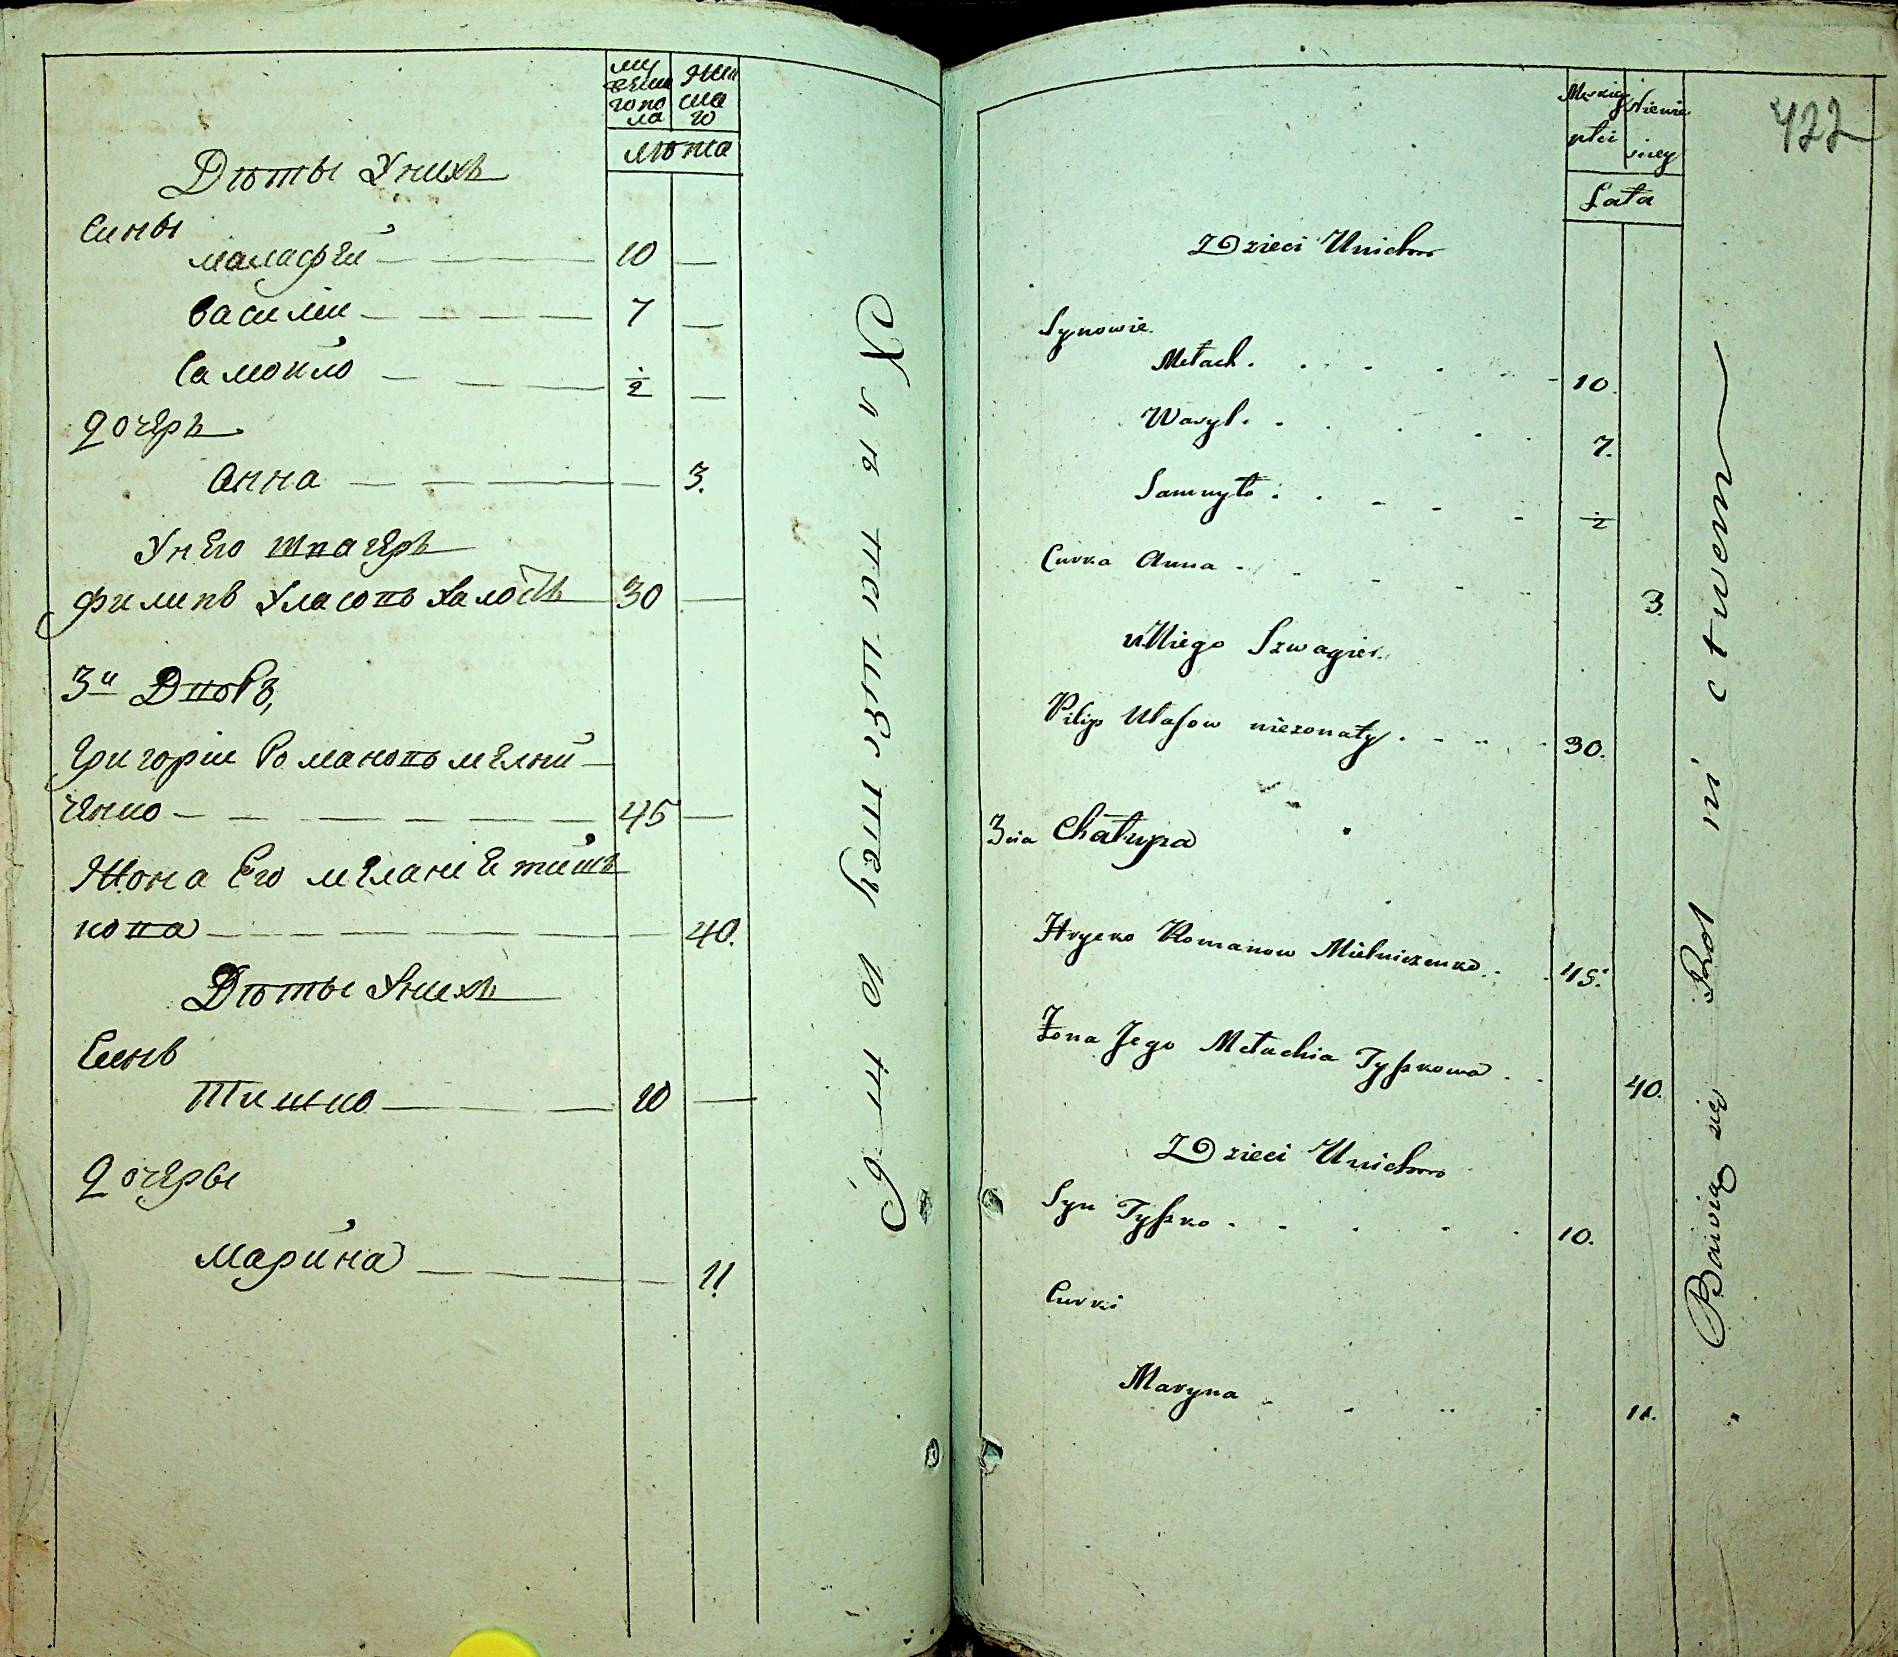 му
жеска
го по
ла
жен
ска
го
лѣта
Дѣты Унихъ
Сины
малафѣй 10 —
василій 7 —
Самойло ½ —
дочерь
Анна 3.
Унего швагеръ
филипъ Уласовъ Халостъ 30 —
3й Дворъ,
Григорій Романовъ мелни
ченко 45 —
Жона Его меланіе тишъ
кова 40.
Дѣты Унихъ
Синъ
Тишко 10 —
дочеры
Марийна 11
Хлѣбопашествую
Męskiey
płci
Żienie
skiey
Lata
422
Dzieci Unichże
Synowie.
Małach. 10.
Wasyl. 7.
Samuyło ½
Curka Anna 3.
u Niego Szwagier.
Pilip Ułasow nieżonaty. 30.
3cia Chałupa
Hryćko Romanow Mielniczenko. 45.
Żona Jego Małachia Tyszkowa 40.
Dzieci Unichże
Syn Tyszko 10.
Curki
Maryna 11.
Bawią się Rolnictwem